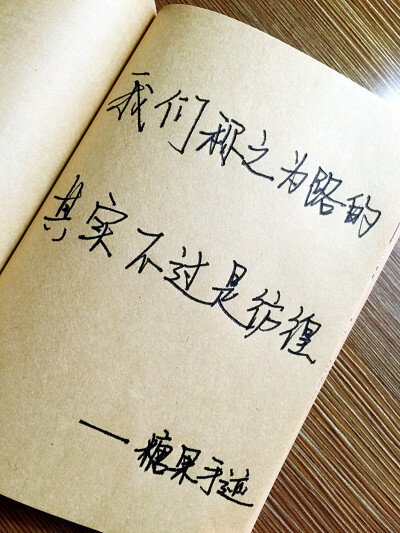 我们称之为路的
其实不过是彷徨
——糖果手迹